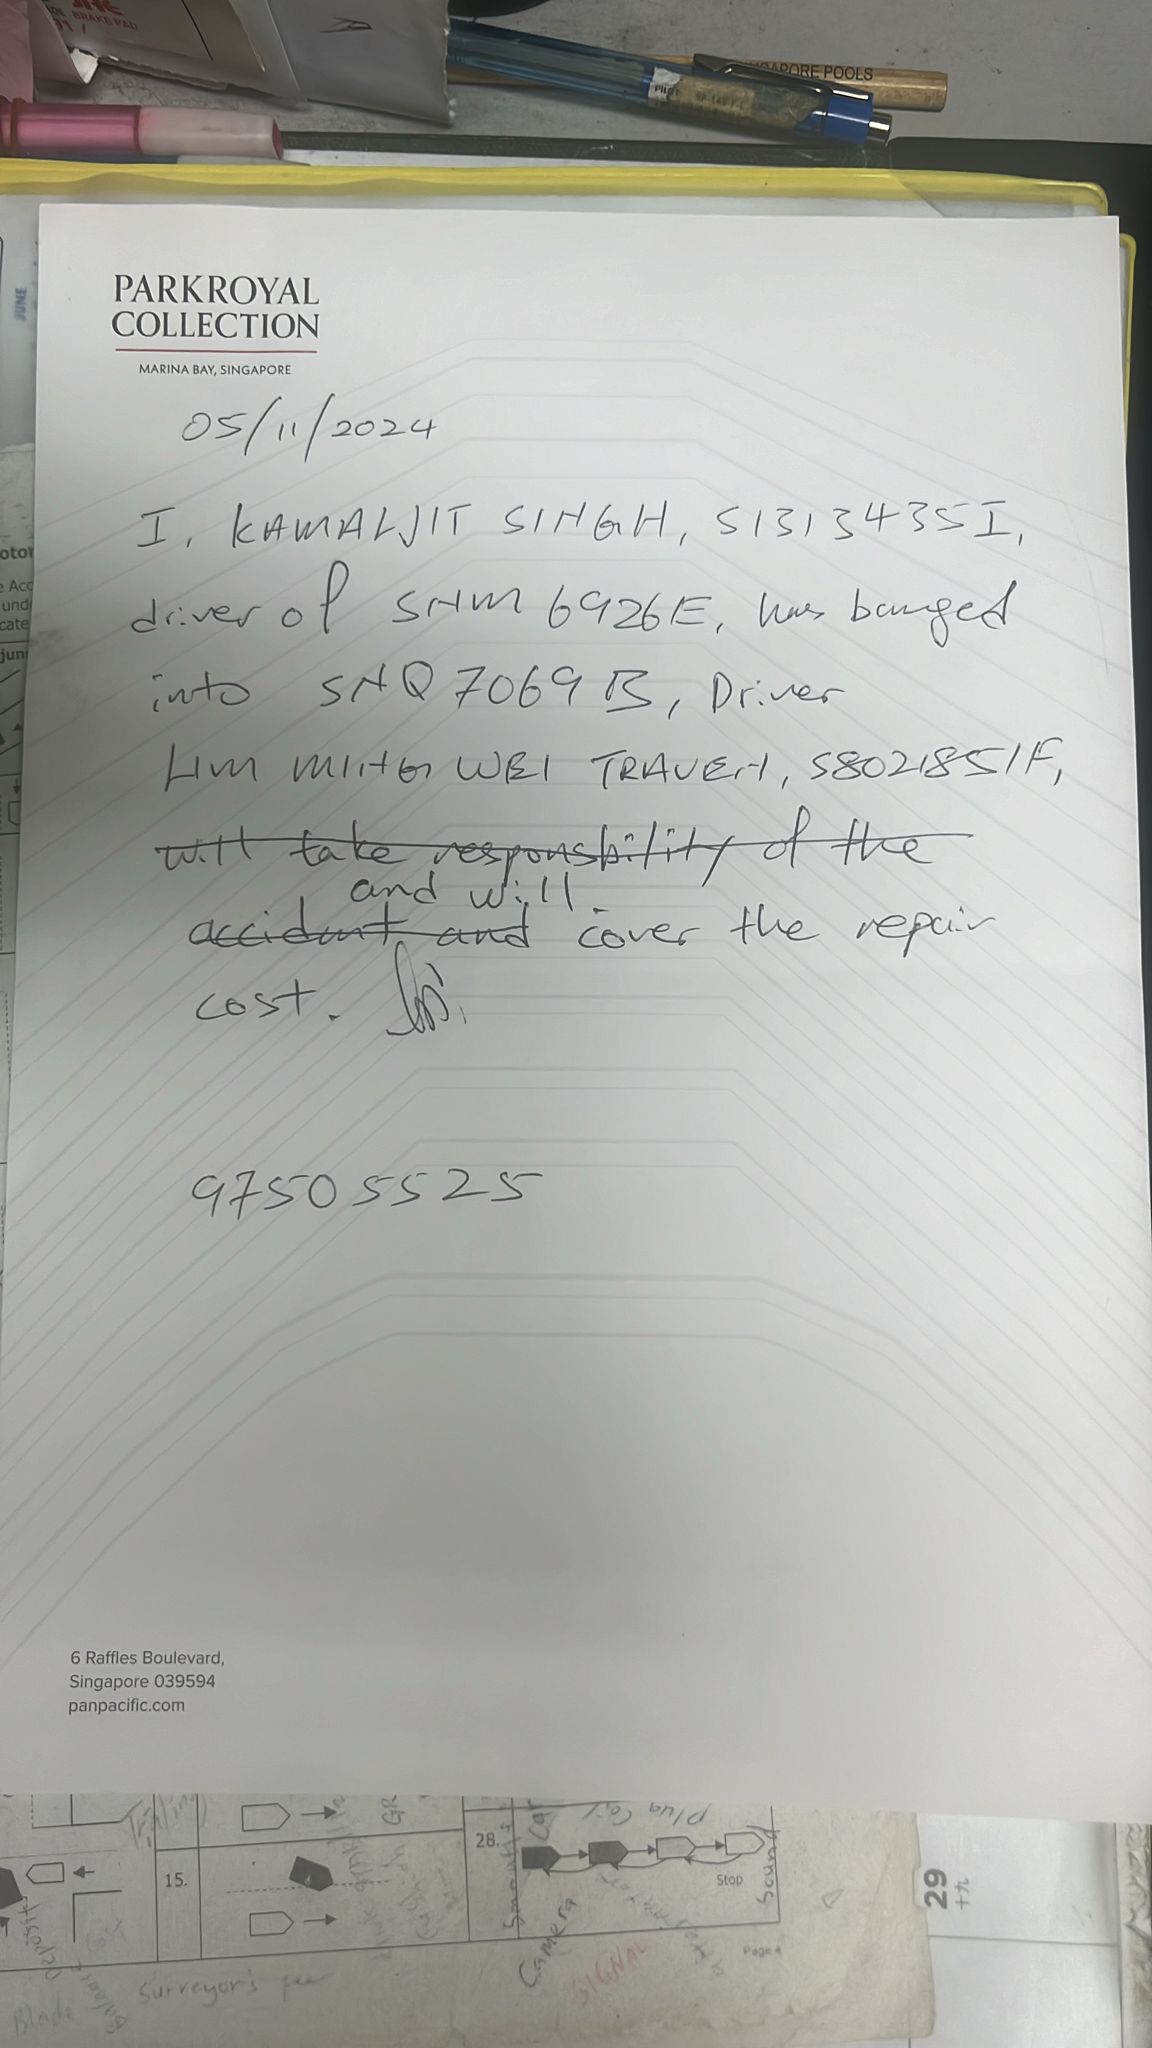 BRAKE PAD
SINGAPORE POOLS
PILOT
JUNE
PARKROYAL
COLLECTION
MARINA BAY, SINGAPORE
05/11/2024
I, KAMALJIT SINGH, S1313435I,
driver of SNM 6926E, has banged
into SNQ 7069B, Driver
LIM MING WEI TRAVEN, S8021851F,
will take responsbility of the
and will
accident and cover the repair
cost.
97505525
6 Raffles Boulevard,
Singapore 039594
panpacific.com
28.
15.
Stop
Sound
Camera
SIGNAL
Page 4
Surveyor's fee
29
十九